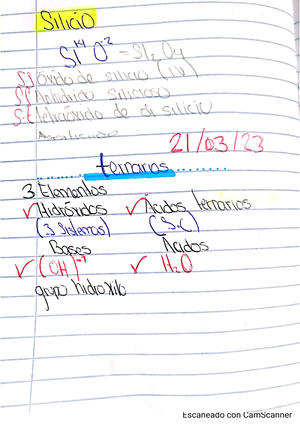 Silicio
Si+4 O-2 = Si2O4
S.S óxido de silicio (IV)
S.F Anhídrido Silicioso
S.E tetraóxido de di silicio
21/03/23
ternarios
3 Elementos
✓ Hidróxidos ✓ Ácidos ternarios
(3 sistemas) (S.C)
Bases Ácidos
✓ (OH)-1 ✓ H2O
grupo hidroxilo
Escaneado con CamScanner